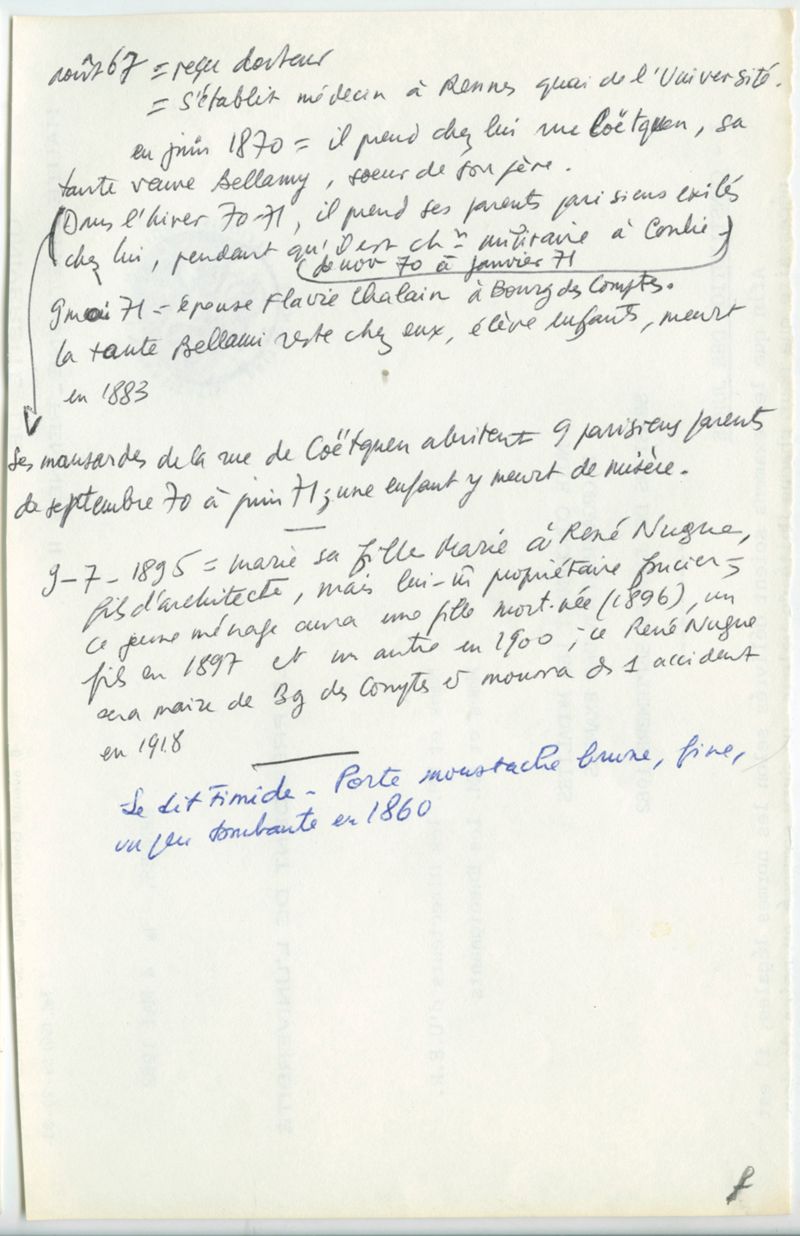 août 67 = reçu docteur
= s'établit médecin à Rennes quai de l'Université.
en juin 1870 = il prend chez lui rue Coëtquen, sa
tante veuve Bellamy, soeur de son père.
(Dans l'hiver 70-71, il prend ses parents parisiens exilés
chez lui, pendant qu'il est ch⁠ⁿ militaire à Conlie)
(de nov 70 à janvier 71
9 mai 71 = épouse Flavie Chalain à Bourg des Comptes.
la tante Bellami reste chez eux, élève enfants, meurt
en 1883
Ses mansardes de la rue de Coëtquen abritent 9 parisiens parents
de septembre 70 à juin 71 ; une enfant y meurt de misère.
9-7-1895 = marie sa fille Marie à René Nugue,
fils d'architecte, mais lui-m̄ propriétaire foncier =
ce jeune ménage aura une fille mort-née (1896), un
fils en 1897 et un autre en 1900 ; ce René Nugue
sera maire de Bg des Comptes & mourra ds 1 accident
en 1918
Se dit timide - Porte moustache brune, fine,
un peu tombante en 1860